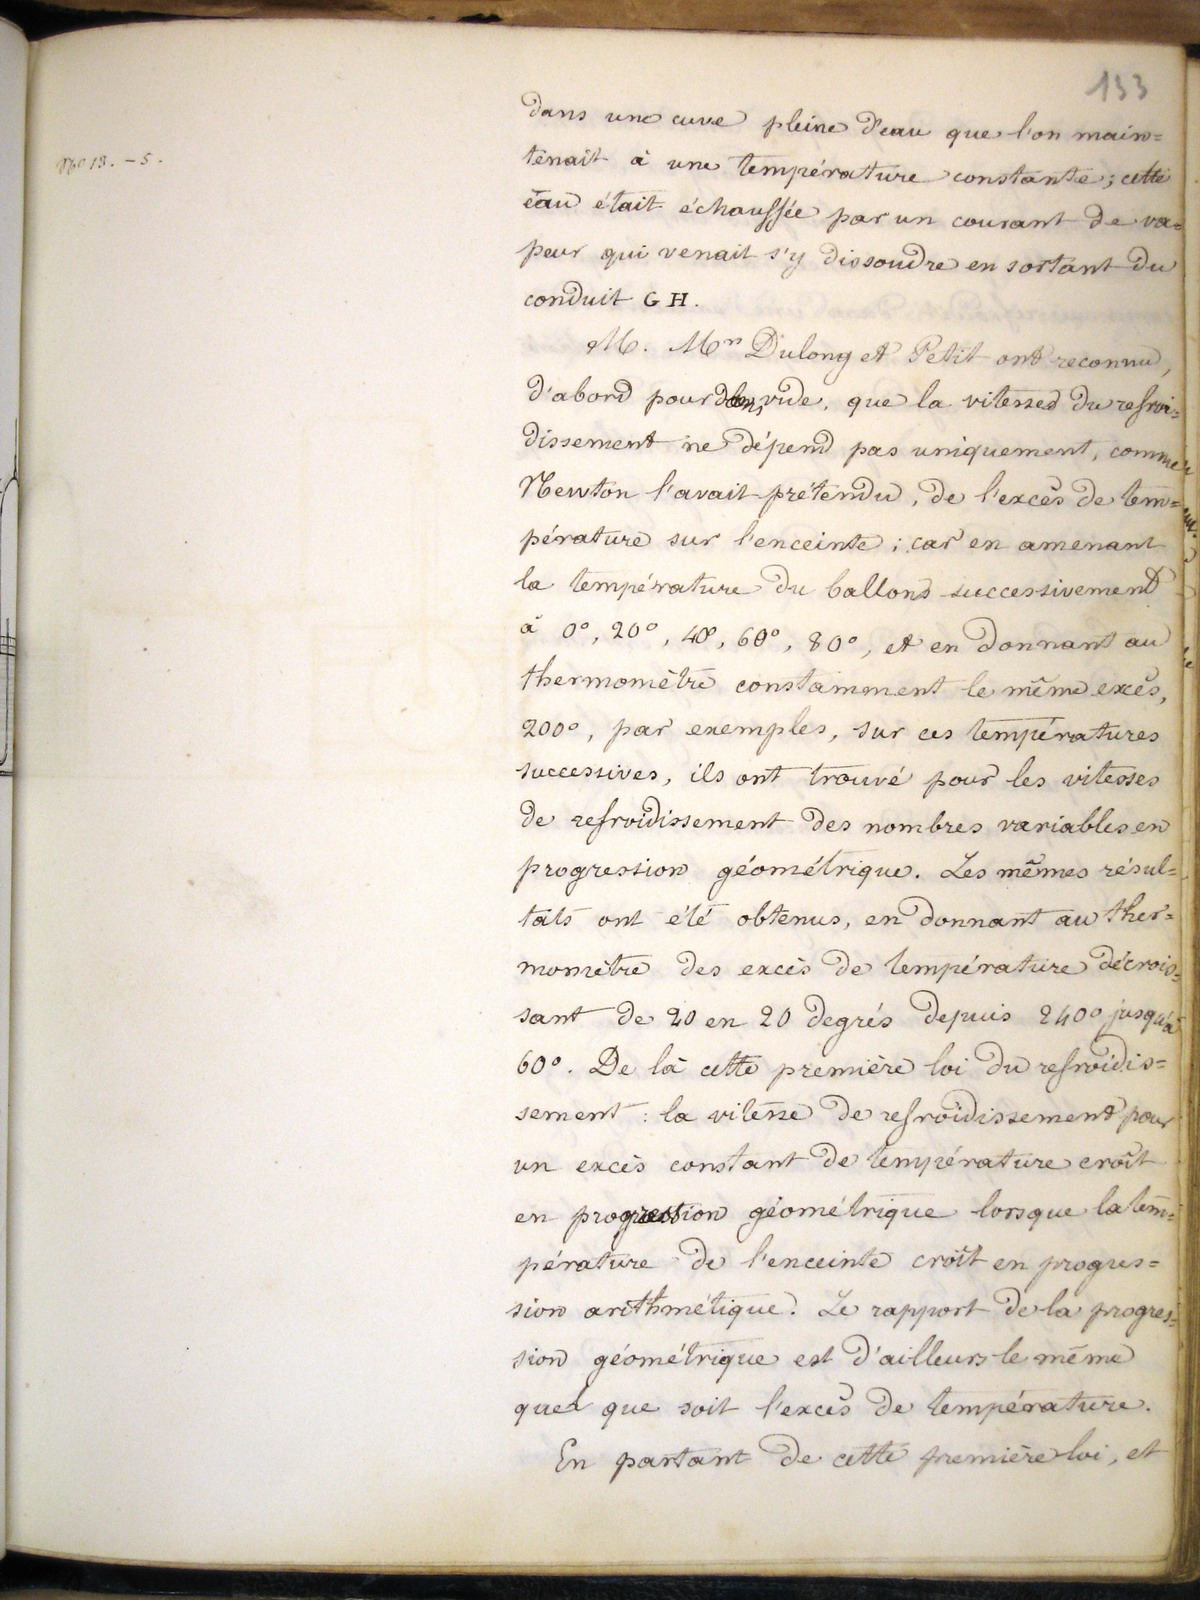 133
No 13. - 5.
dans une cuve pleine d'eau que l'on main=
tenait à une température constante ; cette
eau était échauffée par un courant de va=
peur qui venait s'y dissoudre en sortant du
conduit G H.
M. Mrs Dulong et Petit ont reconnu,
d'abord pour vide, que la vitesse du refroi=
dissement ne dépend pas uniquement, comme
Newton l'avait prétendu, de l'excès de tem=
pérature sur l'enceinte ; car en amenant
la température du ballon successivement
à 0°, 20°, 40°, 60°, 80°, et en donnant au
thermomètre constamment le même excès,
200°, par exemples, sur ces températures
successives, ils ont trouvé pour les vitesses
de refroidissement des nombres variables en
progression géométrique. Les mêmes résul=
tats ont été obtenus, en donnant au ther=
momètre des excès de température décrois=
sant de 20 en 20 degrés depuis 240° jusqu'à
60°. De là cette première loi du refroidis=
sement : la vitesse de refroidissement pour
un excès constant de température croît
en progression géométrique lorsque la tem=
pérature de l'enceinte croît en progres=
sion arithmétique. Le rapport de la progres=
sion géométrique est d'ailleurs le même
quel que soit l'excès de température.
En partant de cette première loi, et